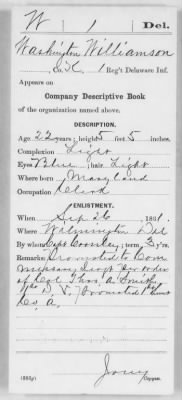 W | 1 | Del.
Washington Williamson
Co. K, 1 Reg't Delaware Inf.
Appears on
Company Descriptive Book
of the organization named above.
DESCRIPTION.
Age 22 years; height 5 feet 5 inches.
Complexion Light
Eyes Blue; hair Light
Where born Maryland
Occupation Clerk
ENLISTMENT.
When Sep 26, 1861.
Where Wilmington Del
By whom Capt ; term 3 y'rs.
Remarks: Promoted to Com
missary Sergt per order
of Col Thos. A. Smyth
1st D. V. Promoted to
Co A.
Copyist.